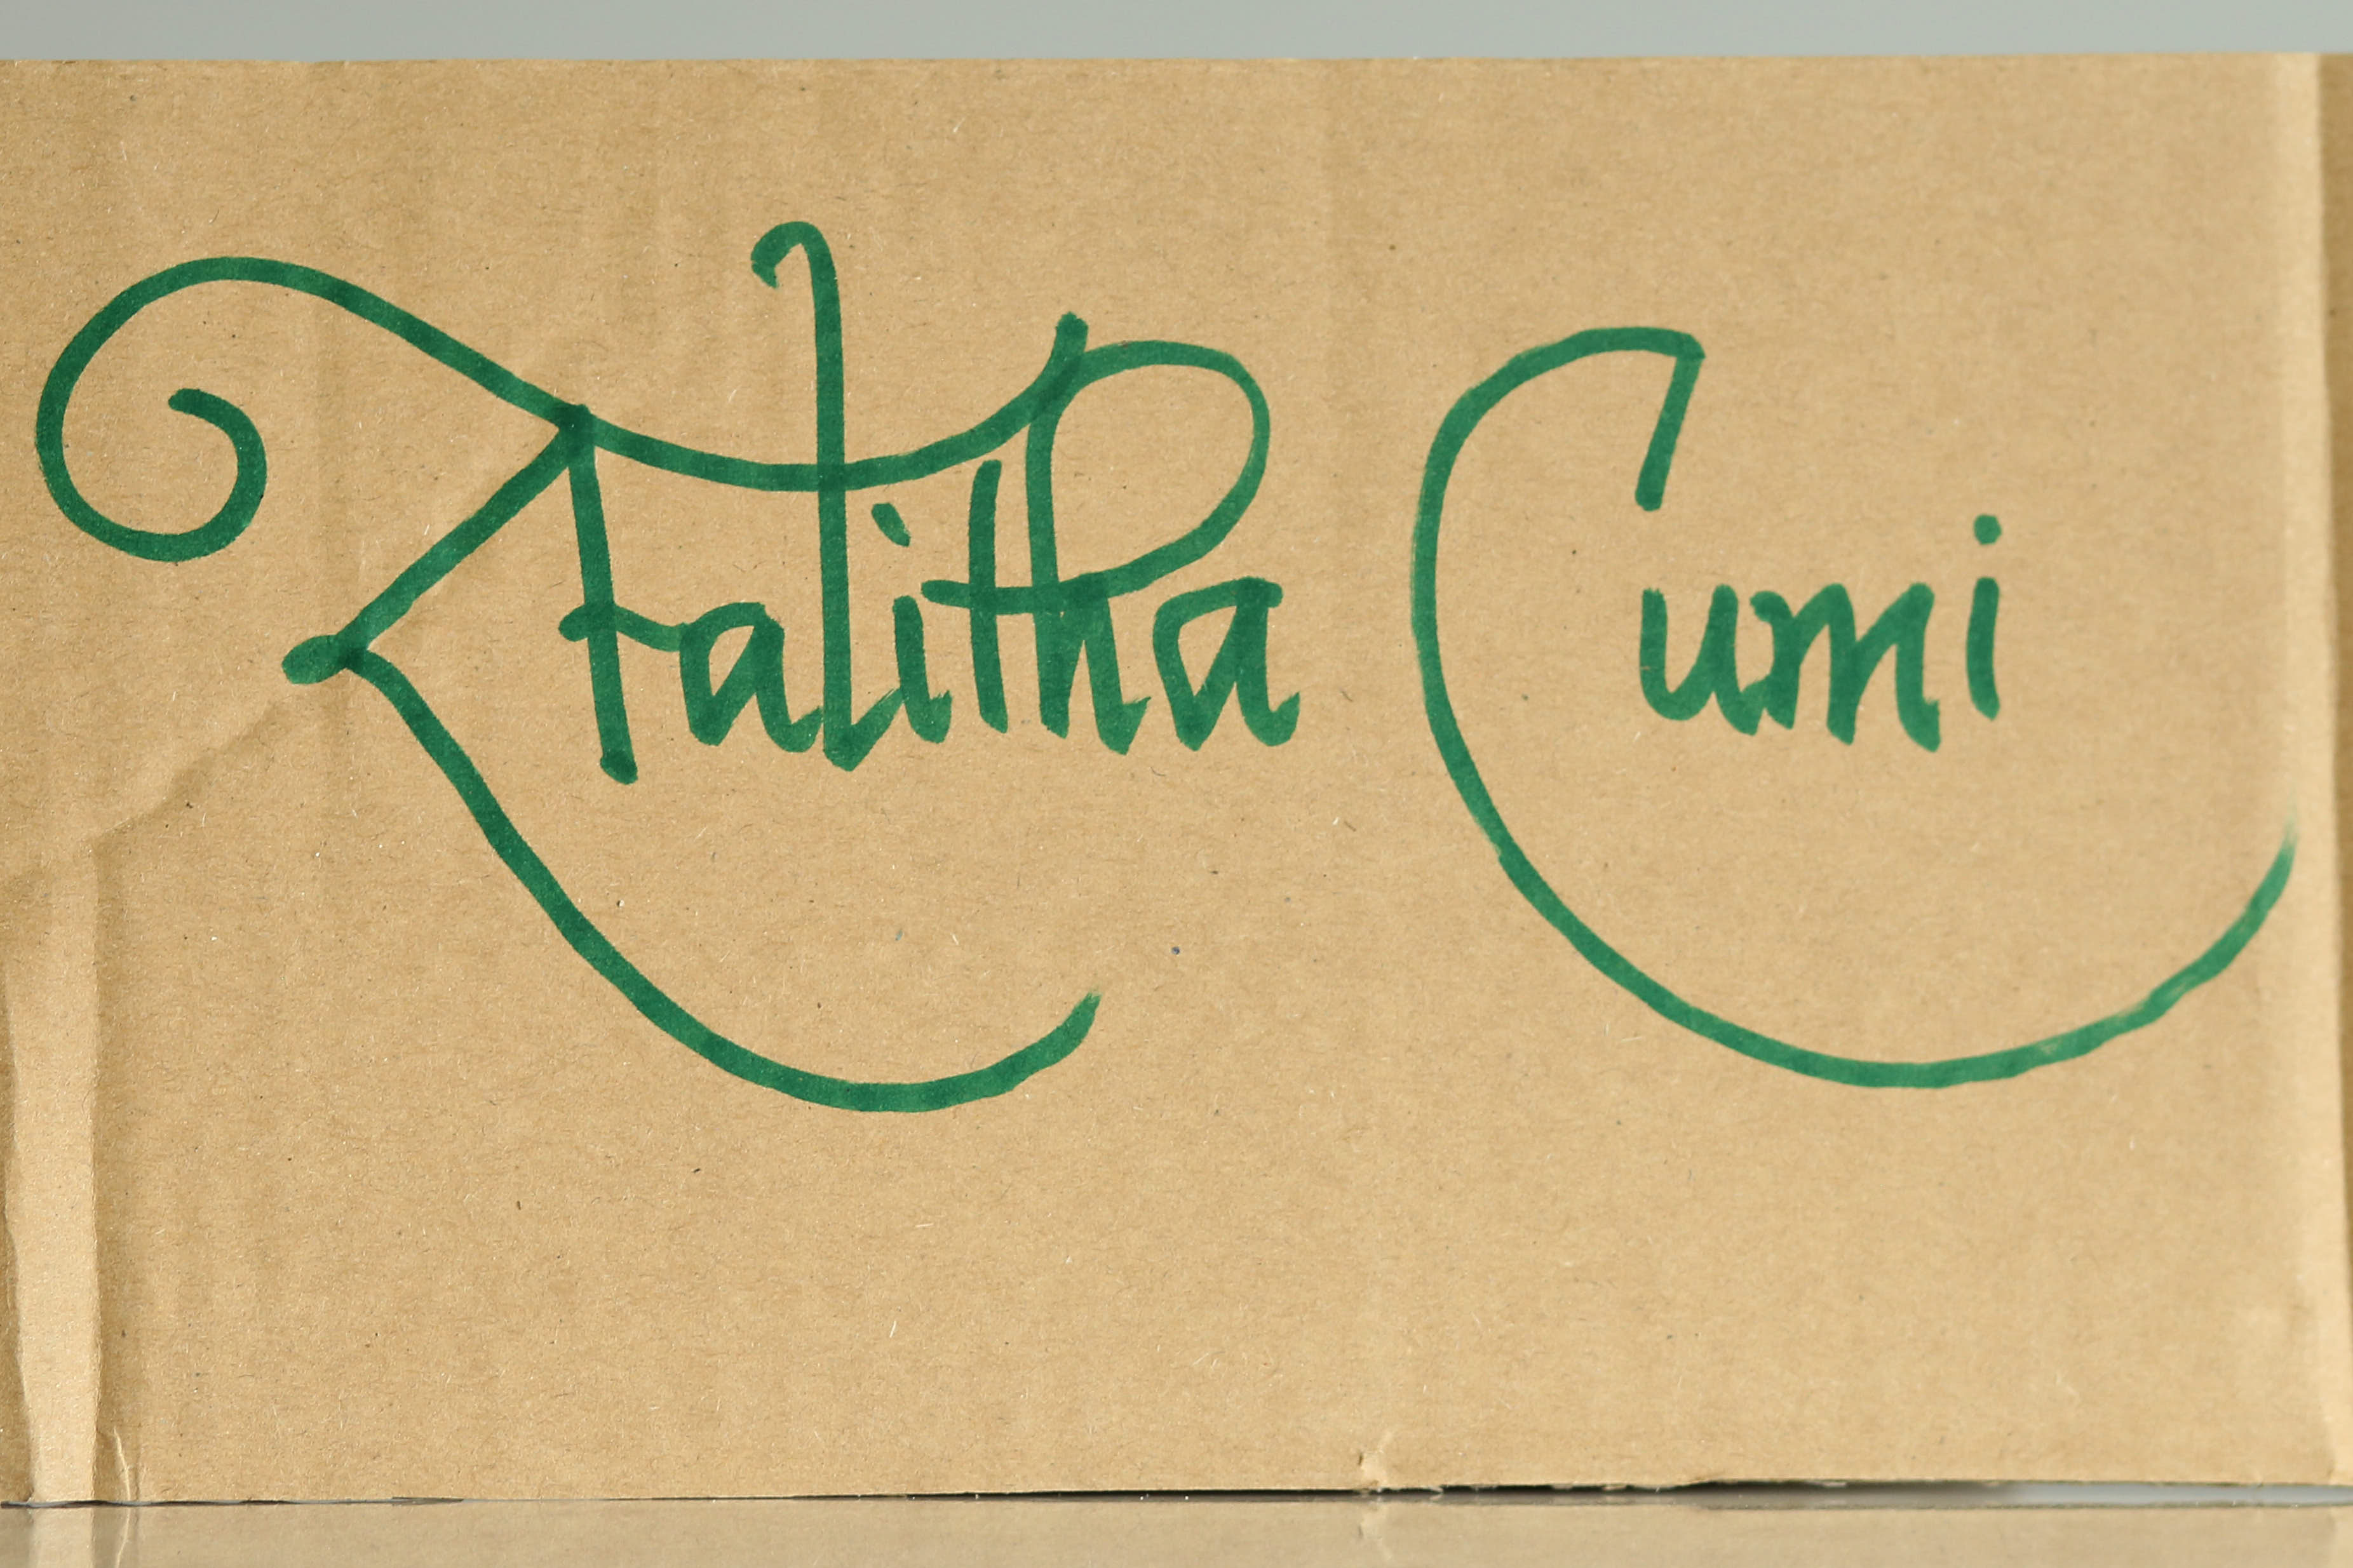 Talitha Cumi